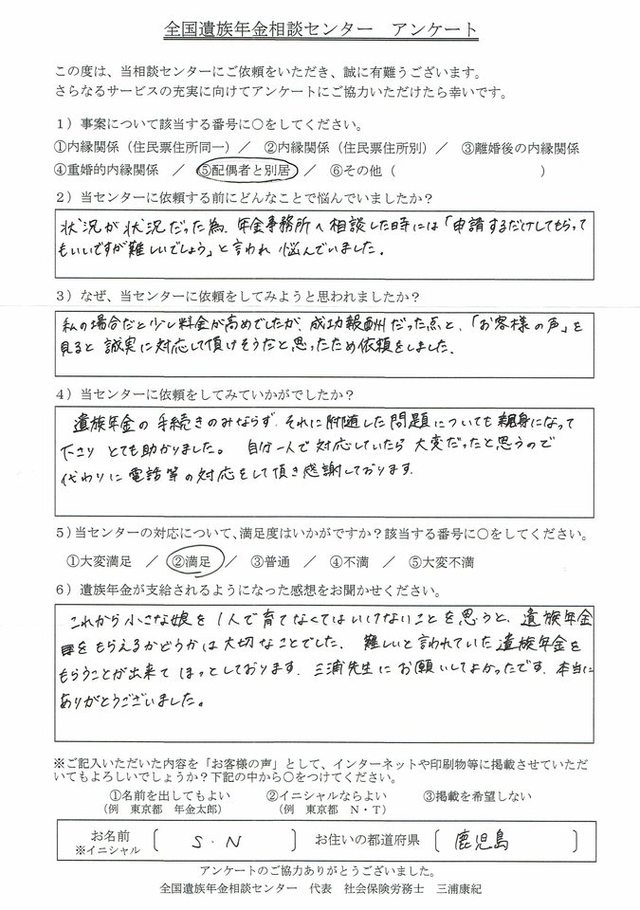 全国遺族年金相談センター　アンケート
この度は、当相談センターにご依頼をいただき、誠に有難うございます。
さらなるサービスの充実に向けてアンケートにご協力いただけたら幸いです。
1）事案について該当する番号に○をしてください。
①内縁関係（住民票住所同一）／　②内縁関係（住民票住所別）／　③離婚後の内縁関係
④重婚的内縁関係　／　⑤配偶者と別居　／　⑥その他（　　　　　　　　）
2）当センターに依頼する前にどんなことで悩んでいましたか？
状況が状況だった為、年金事務所へ相談した時には「申請するだけしてもらって
もいいですが難しいでしょう」と言われ悩んでいました。
3）なぜ、当センターに依頼をしてみようと思われましたか？
私の場合だと少し料金が高めでしたが、成功報酬だった点と、「お客様の声」を
見ると誠実に対応して頂けそうだと思ったため依頼をしました。
4）当センターに依頼をしてみていかがでしたか？
遺族年金の手続きのみならず、それに附随した問題についても親身になって
下さり とても助かりました。 自分一人で対応していたら大変だったと思うので
代わりに電話等の対応をして頂き感謝しております。
5）当センターの対応について、満足度はいかがですか？該当する番号に○をしてください。
①大変満足　／　②満足　／　③普通　／　④不満　／　⑤大変不満
6）遺族年金が支給されるようになった感想をお聞かせください。
これから小さな娘を1人で育てなくてはいけないことを思うと、遺族年金
をもらえるかどうかは大切なことでした。 難しいと言われていた遺族年金を
もらうことが出来てほっとしております。三浦先生にお願いしてよかったです。本当に
ありがとうございました。
※ご記入いただいた内容を「お客様の声」として、インターネットや印刷物等に掲載させていただ
いてもよろしいでしょうか？下記の中から○をつけてください。
①名前を出してもよい　②イニシャルならよい　③掲載を希望しない
（例　東京都　年金太郎）　（例　東京都　N・T）
お名前
※イニシャル
S・N
お住いの都道府県
鹿児島
アンケートのご協力ありがとうございました。
全国遺族年金相談センター　代表　社会保険労務士　三浦康紀